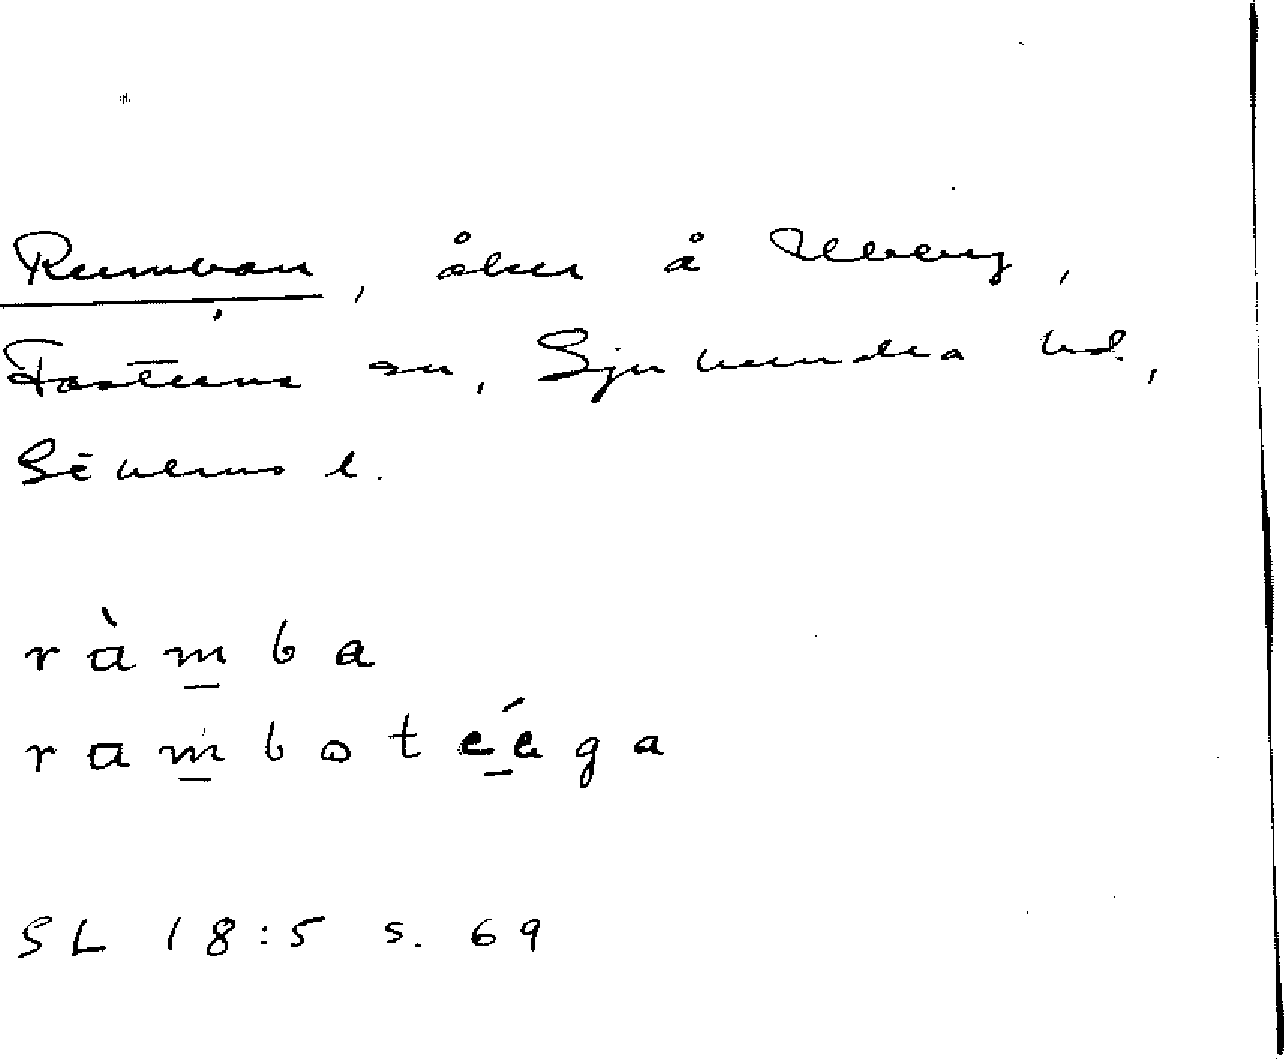 Ramban, åker å
Fasterna sn, Sjuhundra hd,
Sthlms l.
ràm̱ba
ram̱botée̱ga
SL 18:5 s. 69